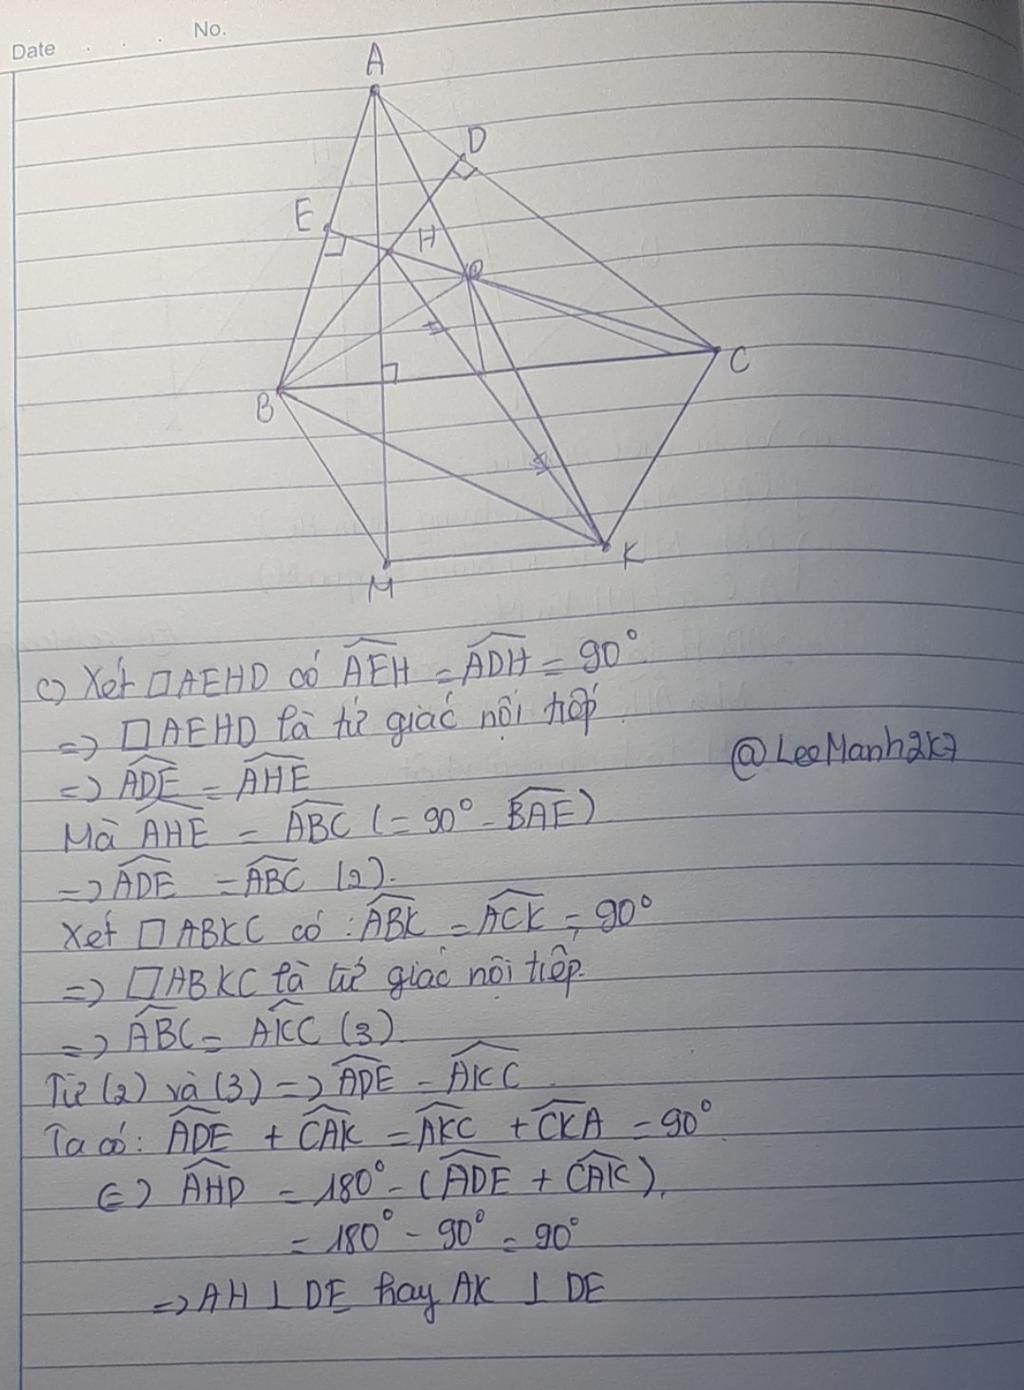 Date . . . No.
A
D
E
H
O
B
C
M
K
c) Xét □AEHD có \widehat{AEH} = \widehat{ADH} = 90°
=> □AEHD là tứ giác nội tiếp
@LeeManh2k7
=> \widehat{ADE} = \widehat{AHE}
Mà \widehat{AHE} = \widehat{ABC} (= 90° - \widehat{BAE})
=> \widehat{ADE} = \widehat{ABC} (2).
Xét □ABKC có : \widehat{ABK} = \widehat{ACK} = 90°
=> □ABKC là tứ giác nội tiếp.
=> \widehat{ABC} = \widehat{AKC} (3)
Từ (2) và (3) => \widehat{ADE} = \widehat{AKC}
Ta có: \widehat{ADE} + \widehat{CAK} = \widehat{AKC} + \widehat{CKA} = 90°
(=) \widehat{AHD} = 180° - (\widehat{ADE} + \widehat{CAK}).
= 180° - 90° = 90°
=> AH ⊥ DE hay AK ⊥ DE